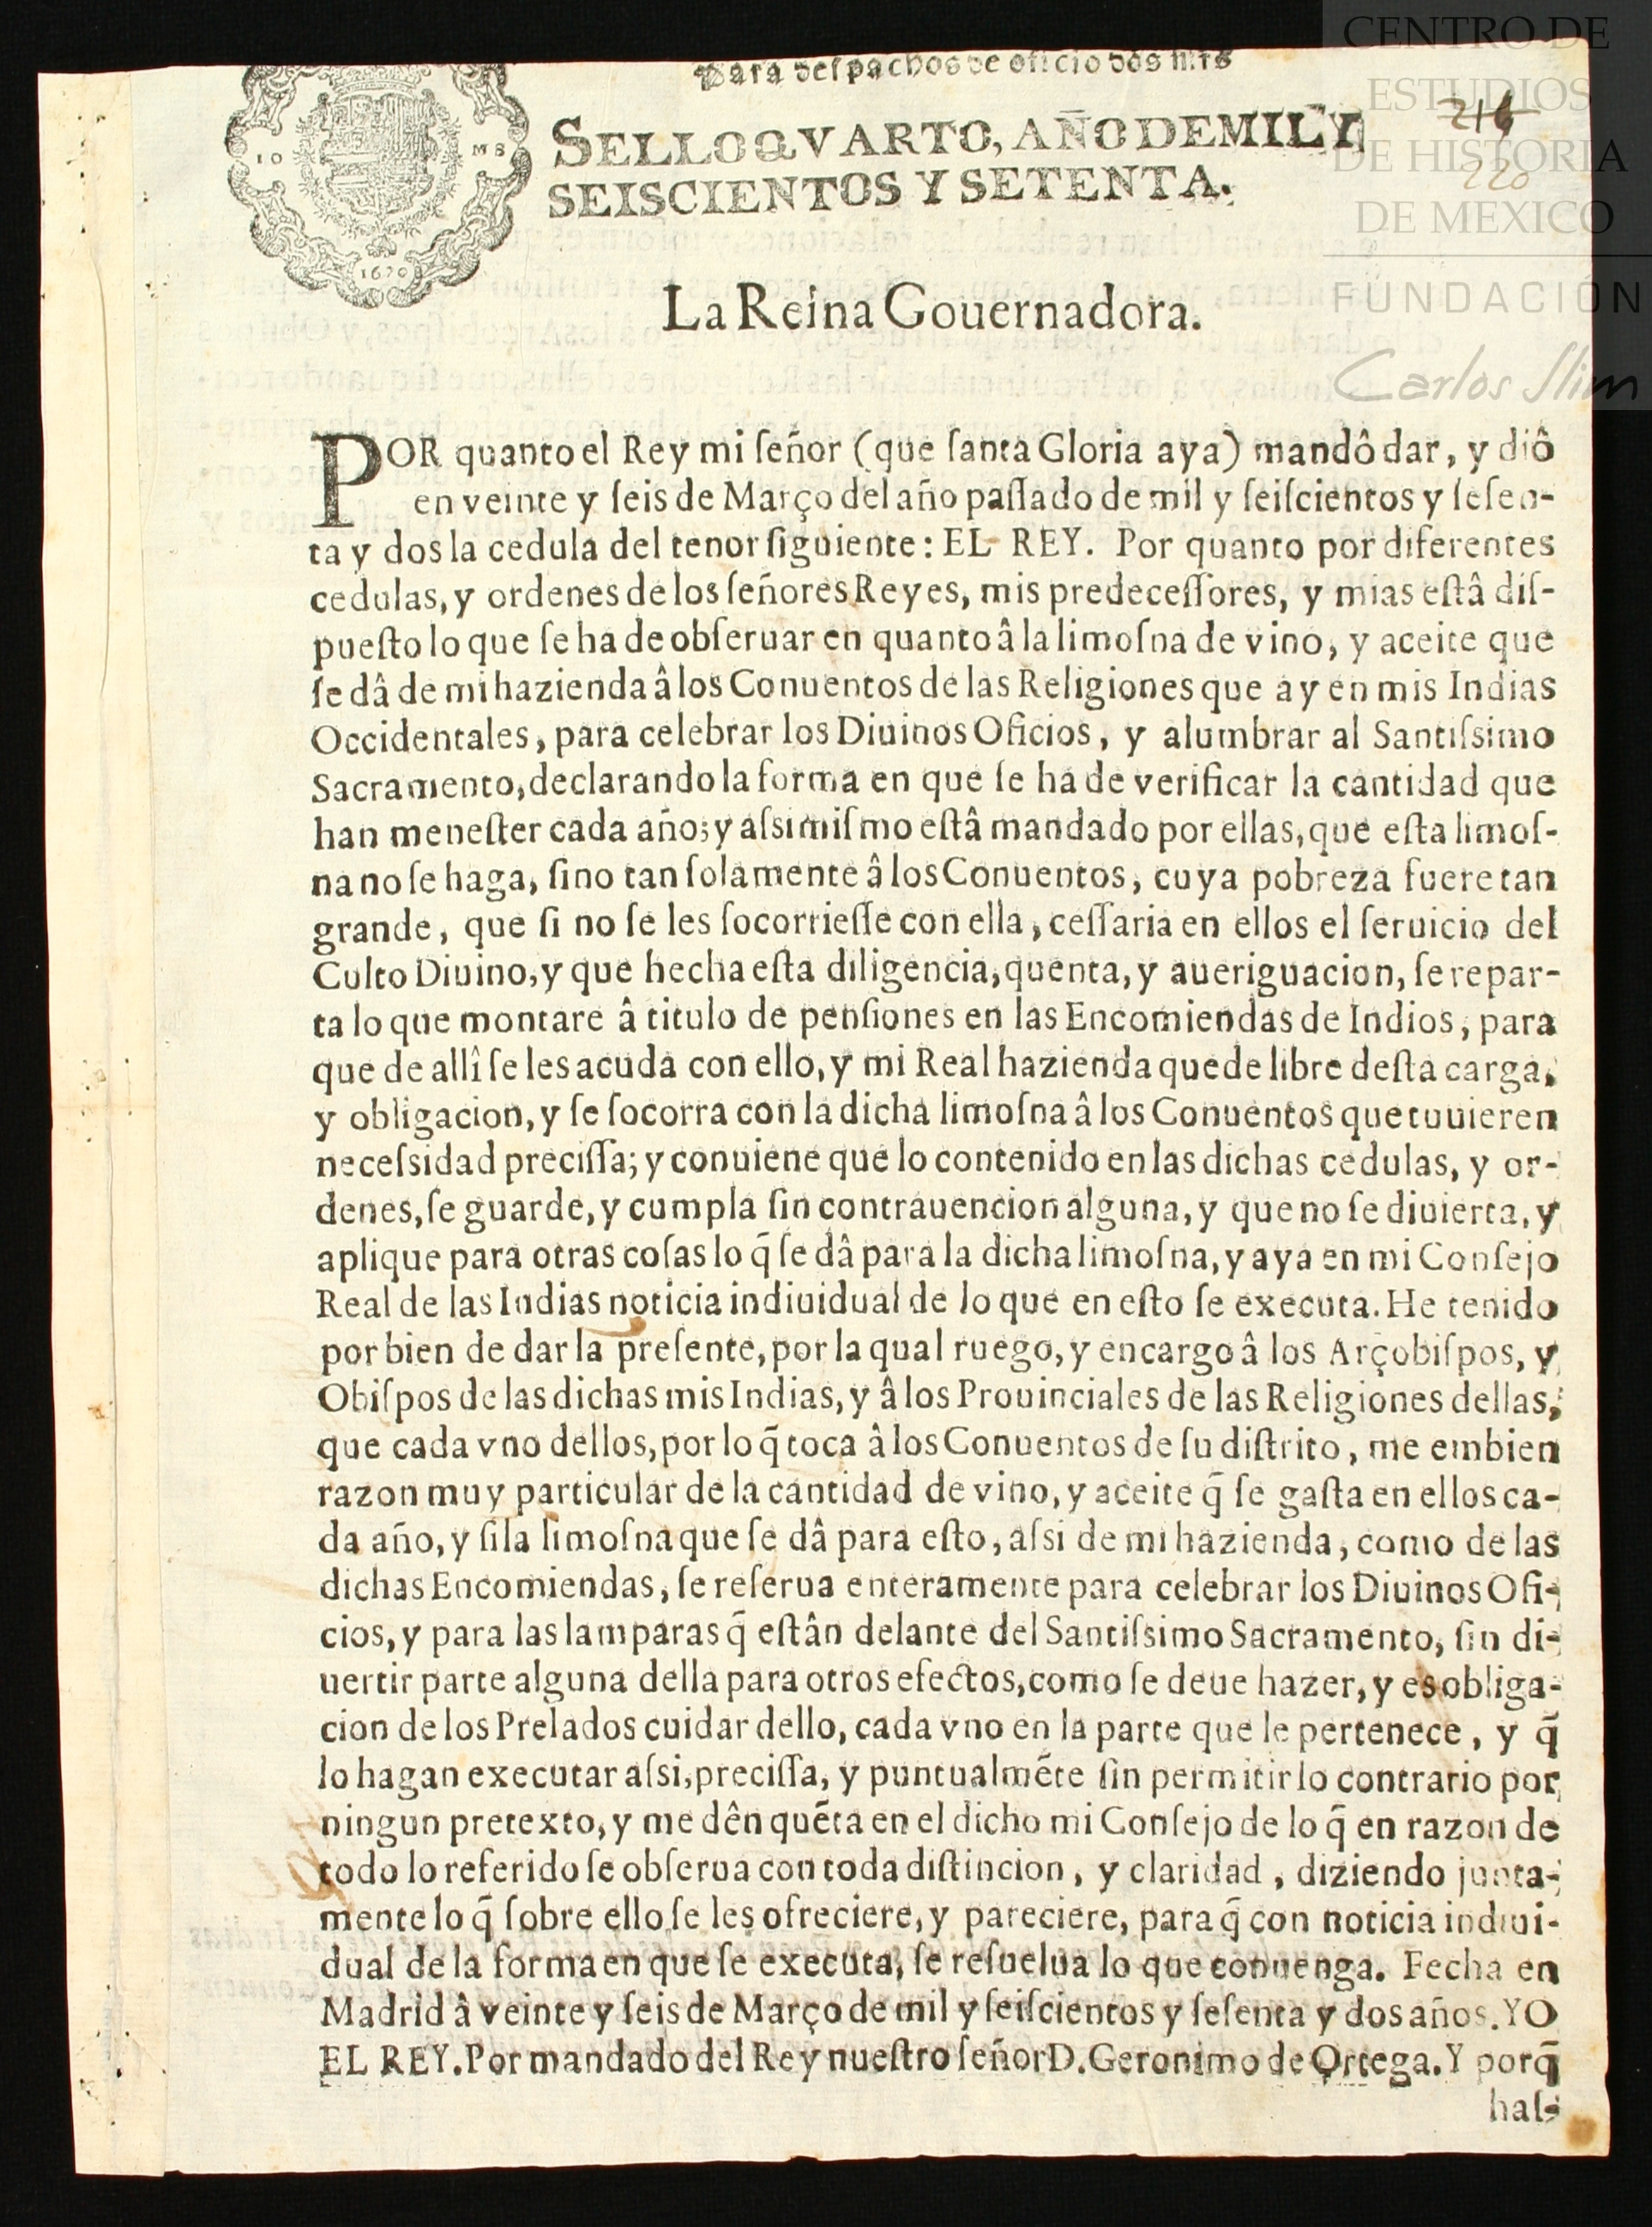 Para despachos de oficio dos mrs
SELLO QVARTO, AÑO DE MIL Y
SEISCIENTOS Y SETENTA.
10 MS
1670
216
220
CENTRO DE
ESTUDIOS
DE HISTORIA
DE MEXICO
FUNDACIÓN
Carlos Slim
La Reina Gouernadora.
POR quanto el Rey mi ſeñor (que ſanta Gloria aya) mandô dar, y diô
en veinte y ſeis de Março del año paſſado de mil y ſeiſcientos y ſeſen-
ta y dos la cedula del tenor ſiguiente: EL REY. Por quanto por diferentes
cedulas, y ordenes de los ſeñores Reyes, mis predeceſſores, y mias eſtâ diſ-
pueſto lo que ſe ha de obſeruar en quanto â la limoſna de vino, y aceite que
ſe dâ de mi hazienda â los Conuentos de las Religiones que ay en mis Indias
Occidentales, para celebrar los Diuinos Oficios, y alumbrar al Santiſsimo
Sacramento, declarando la forma en que ſe ha de verificar la cantidad que
han meneſter cada año; y aſsimiſmo eſtâ mandado por ellas, que eſta limoſ-
na no ſe haga, ſino tan ſolamente â los Conuentos, cuya pobreza fuere tan
grande, que ſi no ſe les ſocorrieſſe con ella, ceſſaria en ellos el ſeruicio del
Culto Diuino, y que hecha eſta diligencia, quenta, y aueriguacion, ſe repar-
ta lo que montare â titulo de penſiones en las Encomiendas de Indios, para
que de allî ſe les acuda con ello, y mi Real hazienda quede libre deſta carga,
y obligacion, y ſe ſocorra con la dicha limoſna â los Conuentos que tuuieren
neceſsidad preciſſa; y conuiene que lo contenido en las dichas cedulas, y or-
denes, ſe guarde, y cumpla ſin contrauencion alguna, y que no ſe diuierta, y
aplique para otras coſas lo q̃ ſe dâ para la dicha limoſna, y aya en mi Conſejo
Real de las Indias noticia indiuidual de lo que en eſto ſe executa. He tenido
por bien de dar la preſente, por la qual ruego, y encargo â los Arçobiſpos, y
Obiſpos de las dichas mis Indias, y â los Prouinciales de las Religiones dellas,
que cada vno dellos, por lo q̃ toca â los Conuentos de ſu diſtrito, me embien
razon muy particular de la cantidad de vino, y aceite q̃ ſe gaſta en ellos ca-
da año, y ſi la limoſna que ſe dâ para eſto, aſsi de mi hazienda, como de las
dichas Encomiendas, ſe reſerua enteramente para celebrar los Diuinos Ofi-
cios, y para las lamparas q̃ eſtân delante del Santiſsimo Sacramento, ſin di-
uertir parte alguna della para otros efectos, como ſe deue hazer, y es obliga-
cion de los Prelados cuidar dello, cada vno en la parte que le pertenece, y q̃
lo hagan executar aſsi, preciſſa, y puntualmẽte ſin permitir lo contrario por
ningun pretexto, y me dên quẽta en el dicho mi Conſejo de lo q̃ en razon de
todo lo referido ſe obſerua con toda diſtincion, y claridad, diziendo junta-
mente lo q̃ ſobre ello ſe les ofreciere, y pareciere, para q̃ con noticia indiui-
dual de la forma en que ſe executa, ſe reſuelua lo que conuenga. Fecha en
Madrid â veinte y ſeis de Março de mil y ſeiſcientos y ſeſenta y dos años. YO
EL REY. Por mandado del Rey nueſtro ſeñor D. Geronimo de Ortega. Y porq̃
haſ-